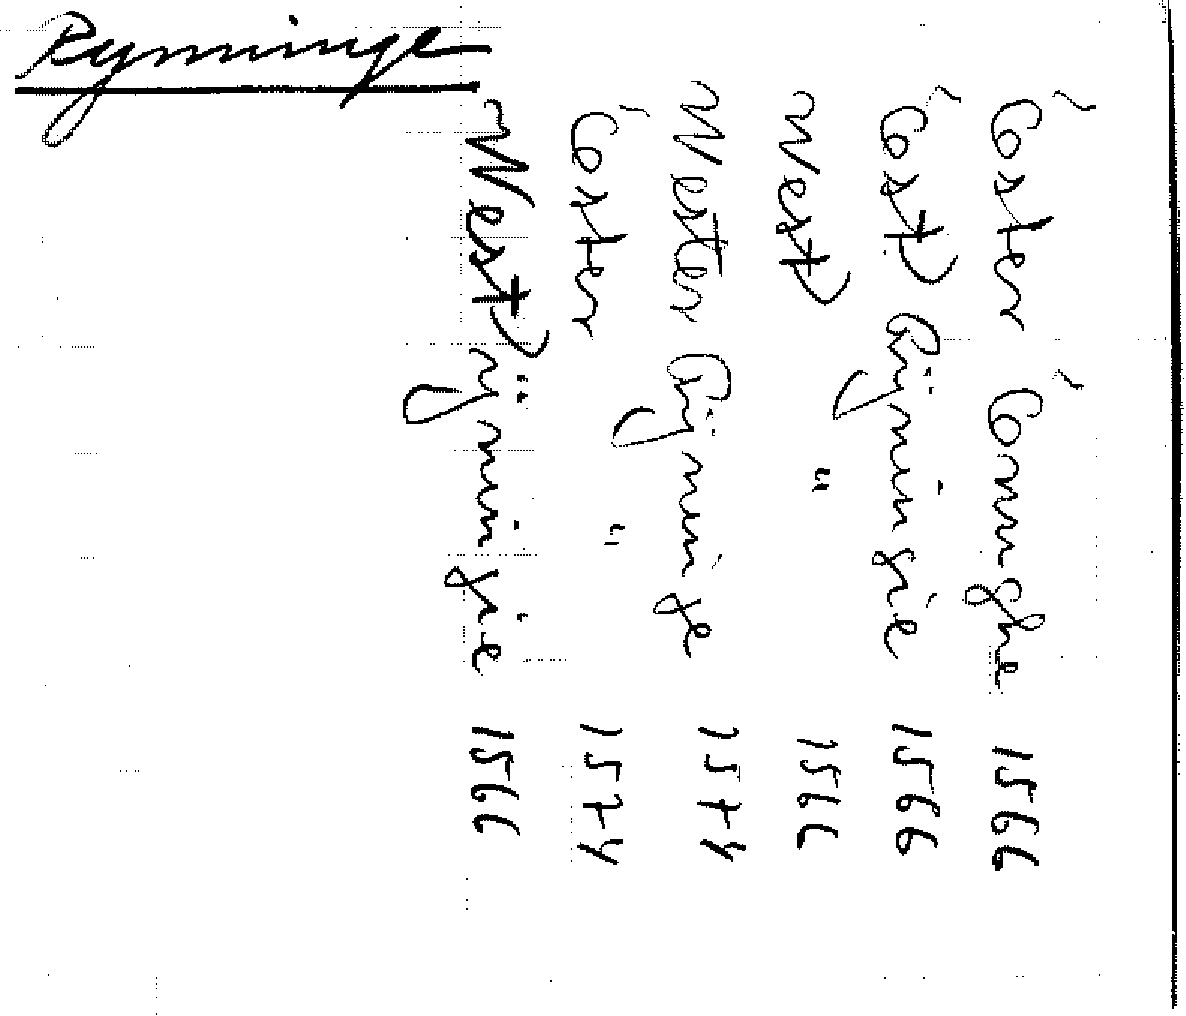 Rynninge
Öster 1566
Öst) Rÿningie 1566
West) " 1566
Wester Rÿninge 1574
Öster " 1574
West) rÿningie 1566